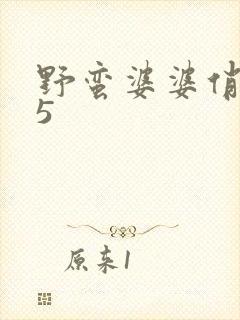 野蛮婆婆俏
5
原来1